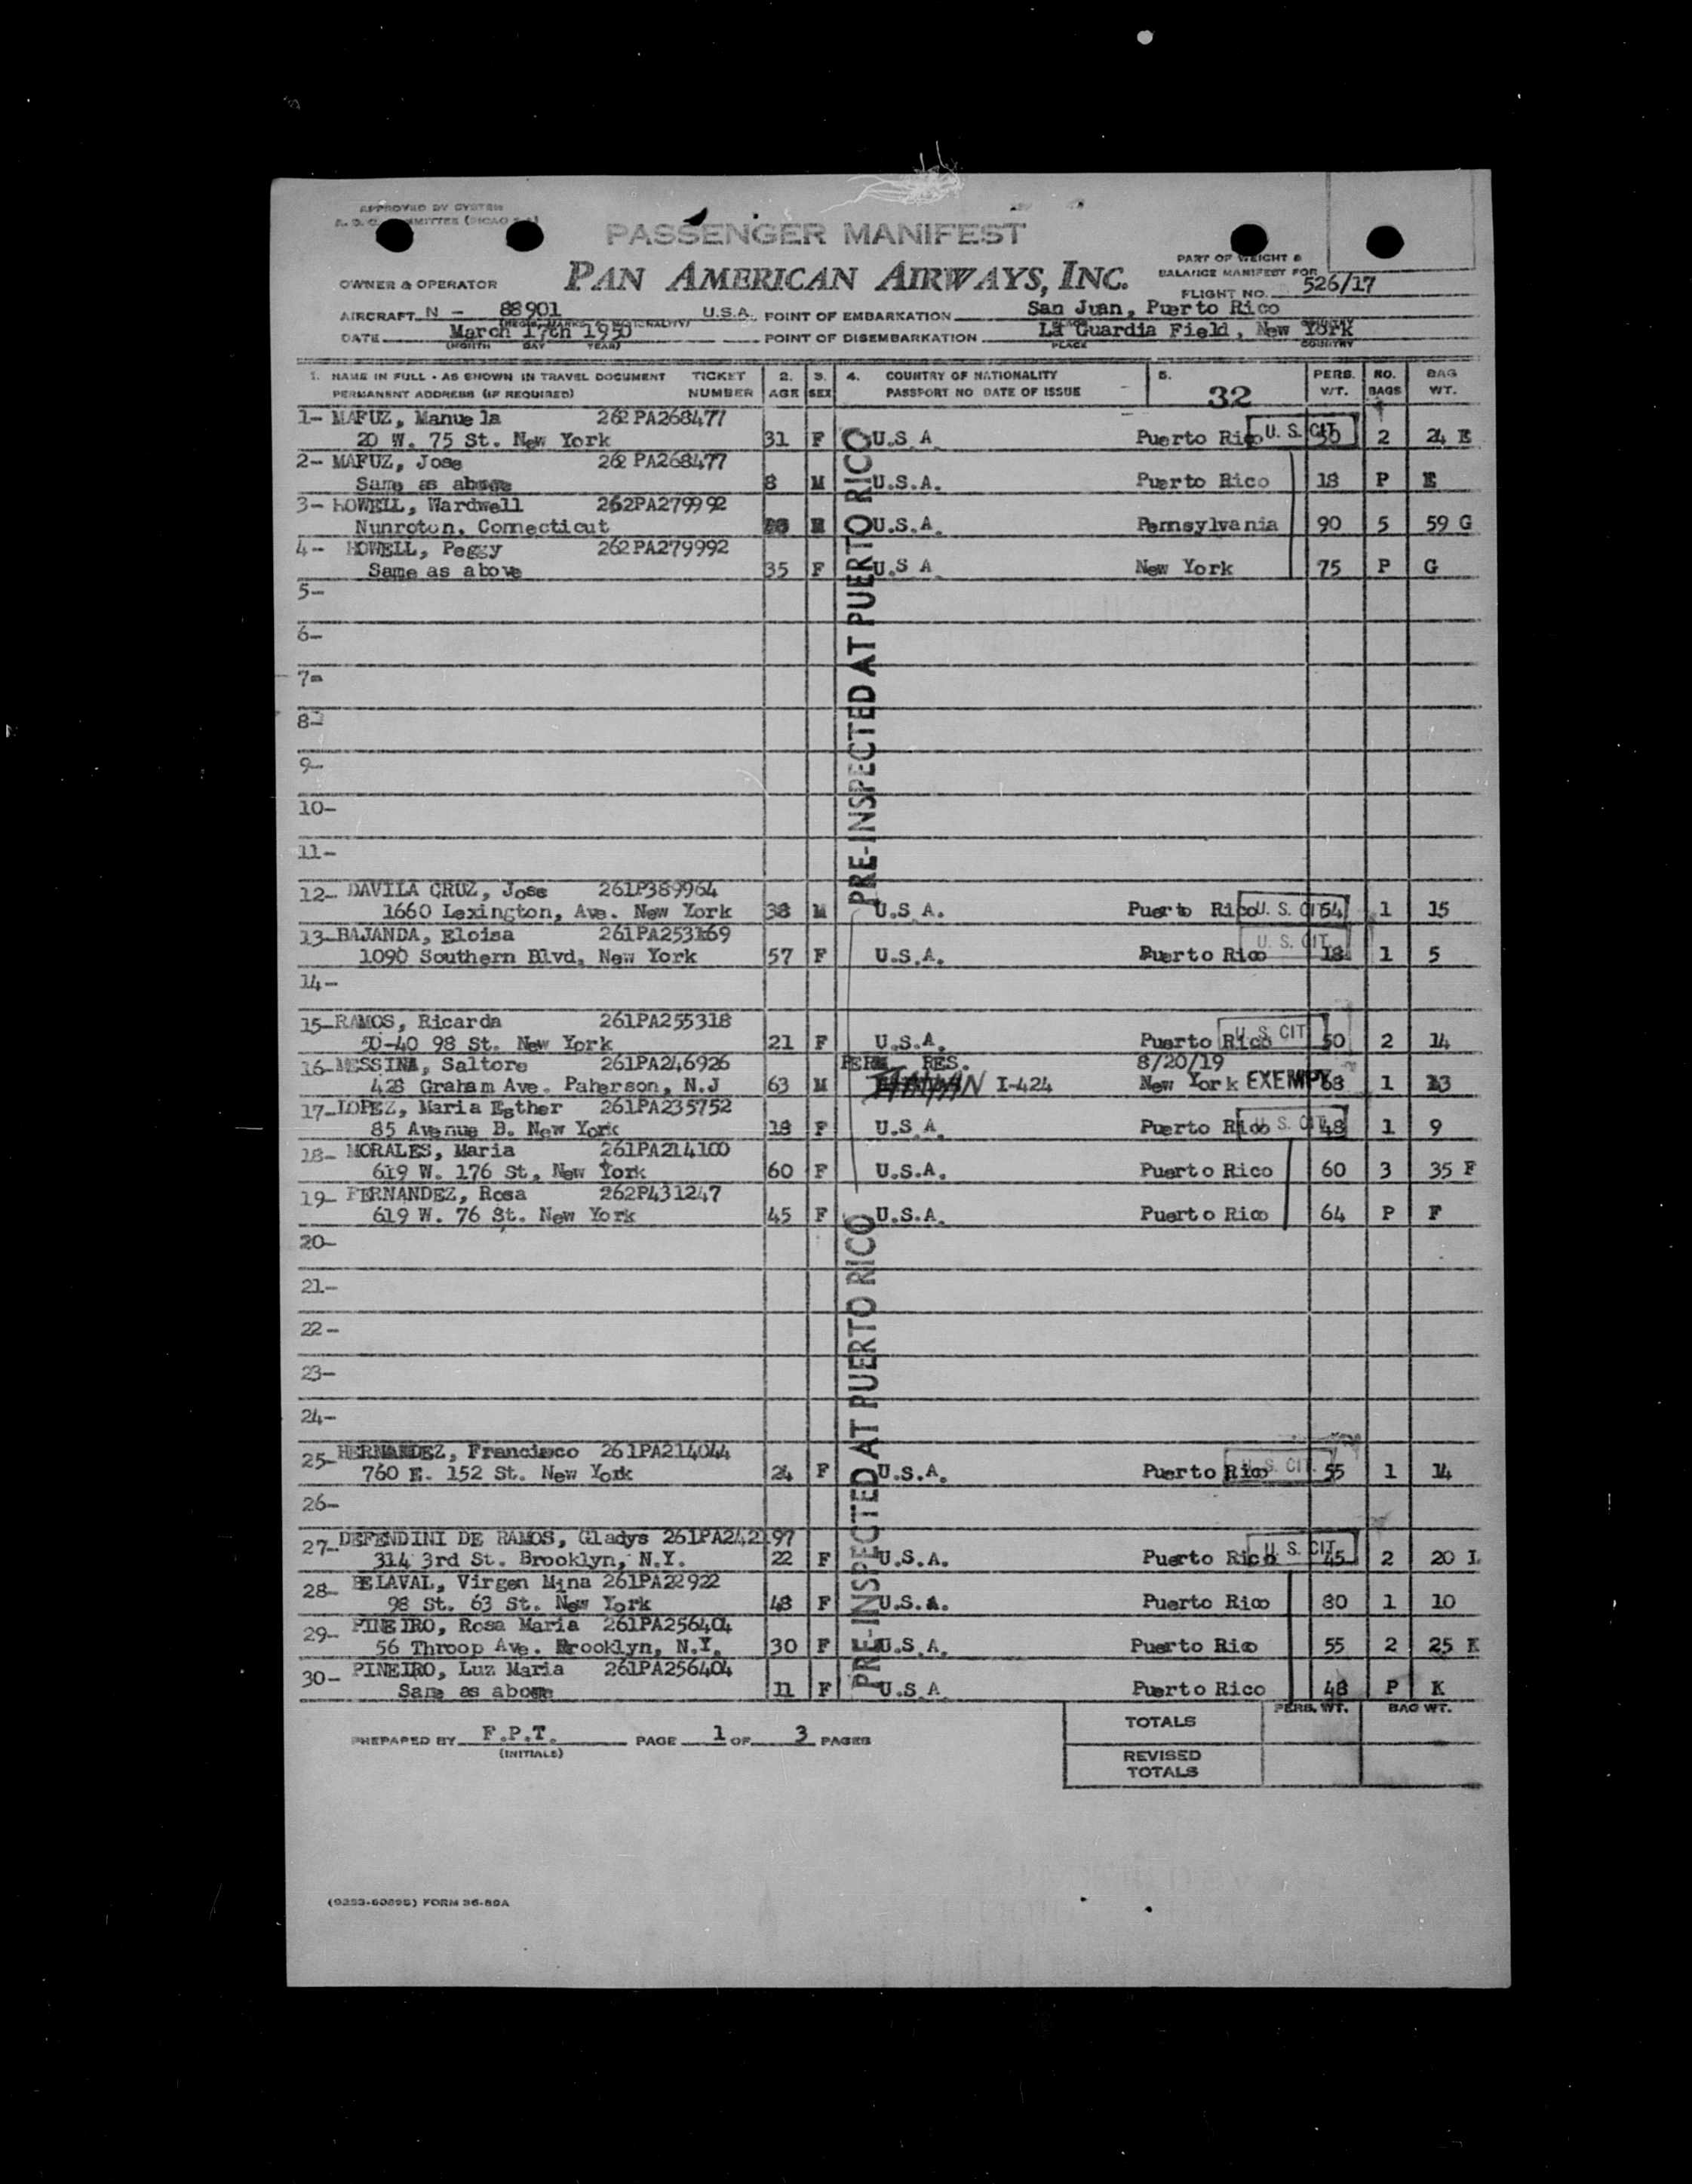 APPROVED BY SYSTEM
PASSENGER MANIFEST
PART OF WEIGHT &
BALANCE MANIFEST FOR
OWNER & OPERATOR PAN AMERICAN AIRWAYS, INC.
FLIGHT NO. 526/17
AIRCRAFT N - 88901 U.S.A. POINT OF EMBARKATION San Juan, Puerto Rico
DATE March 17th 1950 POINT OF DISEMBARKATION La Guardia Field, New York
(MONTH DAY YEAR) PLACE COUNTRY
1. NAME IN FULL - AS SHOWN IN TRAVEL DOCUMENT TICKET 2. 3. 4. COUNTRY OF NATIONALITY 5. PERS. NO. BAG
PERMANENT ADDRESS (IF REQUIRED) NUMBER AGE SEX PASSPORT NO DATE OF ISSUE 32 WT. BAGS WT.
1- MAFUZ, Manuela 262PA268477
20 W. 75 St. New York 31 F U.S A Puerto Rico U. S. CIT 2 24 E
2- MAFUZ, Jose 262 PA268477
Same as above 8 M U.S.A. Puerto Rico 18 P E
3- HOWELL, Wardwell 262PA279992
Nunroton, Connecticut U.S.A. Pennsylvania 90 5 59 G
4- HOWELL, Peggy 262PA279992
Same as above 35 F U.S A New York 75 P G
5-
6-
7-
8-
9-
10-
11-
PRE-INSPECTED AT PUERTO RICO
12- DAVILA CRUZ, Jose 261P389964
1660 Lexington, Ave. New York 38 M U.S A. Puerto Rico U. S. CIT 54 1 15
13- BAJANDA, Eloisa 261PA253169
1090 Southern Blvd, New York 57 F U.S.A. Puerto Rico U. S. CIT 18 1 5
14-
15- RAMOS, Ricarda 261PA255318
50-40 98 St. New York 21 F U.S.A. Puerto Rico U. S. CIT 50 2 14
16- MESSINA, Saltore 261PA246926 PERM RES. 8/20/19
428 Graham Ave. Paherson, N.J 63 M I-424 New York EXEMPT 68 1 13
17- LOPEZ, Maria Esther 261PA235752
85 Avenue B. New York 18 F U.S A. Puerto Rico U. S. CIT 48 1 9
18- MORALES, Maria 261PA214100
619 W. 176 St, New York 60 F U.S.A. Puerto Rico 60 3 35 F
19- FERNANDEZ, Rosa 262P431247
619 W. 76 St. New York 45 F U.S.A. Puerto Rico 64 P F
20-
21-
22-
23-
24-
25- HERNANDEZ, Francisco 261PA214044
760 E. 152 St. New York 24 F U.S.A. Puerto Rico U. S. CIT. 55 1 14
26-
27- DEFENDINI DE RAMOS, Gladys 261PA242197
314 3rd St. Brooklyn, N.Y. 22 F U.S.A. Puerto Rico U. S. CIT. 45 2 20 L
28- BELAVAL, Virgen Mina 261PA22922
98 St. 63 St. New York 48 F U.S.A. Puerto Rico 80 1 10
29- PINEIRO, Rosa Maria 261PA256404
56 Throop Ave. Brooklyn, N.Y. 30 F U.S.A. Puerto Rico 55 2 25 K
30- PINEIRO, Luz Maria 261PA256404
Same as above 11 F U.S A Puerto Rico 48 P K
PRE-INSPECTED AT PUERTO RICO
PERS. WT. BAG WT.
TOTALS
PREPARED BY F.P.T. PAGE 1 OF 3 PAGES
(INITIALS)
REVISED
TOTALS
FORM 36-80A